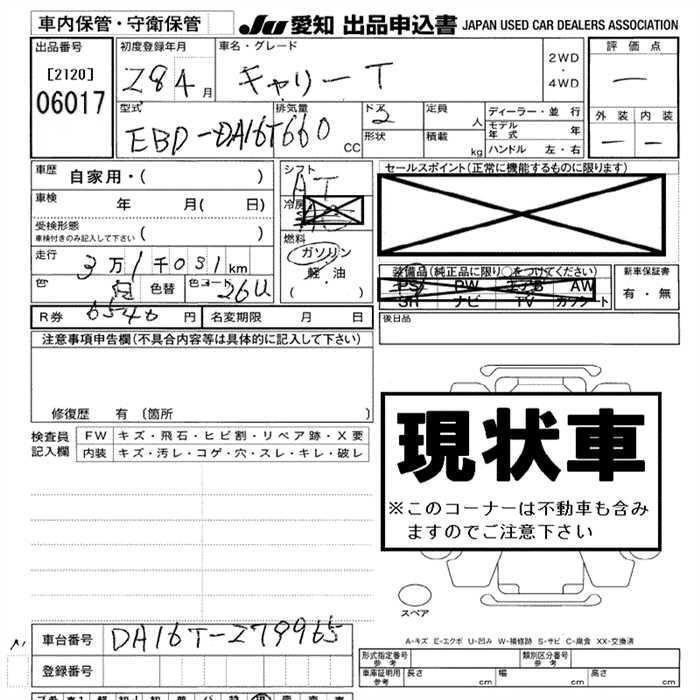 車内保管・守衛保管 JU 愛知 出品申込書 JAPAN USED CAR DEALERS ASSOCIATION
出品番号 初度登録年月 車名・グレード 評価点
[2120] 28 4月 キャリー T 2WD・4WD —
06017
型式 排気量 ドア 定員 人 ディーラー・並行 外装 内装
EBD-DA16T 660 CC 2 モデル年式 年 — —
形状 積載 kg ハンドル 左・右
車歴 自家用・( ) シフト AT セールスポイント(正常に機能するものに限ります)
車検 年 月( 日) 冷房 AC
受検形態
車検付きのみ記入して下さい ( ) 燃料 ガソリン
走行 3万1千031km 軽・油
( )
装備品(純正品に限り○をつけてください) 新車保証書
PS PW エアB AW 有・無
SR ナビ TV カセット
色 白 色替 色コード 26U
R券 6540 円 名変期限 月 日 後日品
注意事項申告欄(不具合内容等は具体的に記入して下さい)
修復歴 有 〔箇所 〕
検査員記入欄 FW キズ・飛石・ヒビ割・リペア跡・X要
内装 キズ・汚レ・コゲ・穴・スレ・キレ・破レ
現状車
※このコーナーは不動車も含み
ますのでご注意下さい
スペア
車台番号 DA16T-279965
登録番号
A-キズ E-エクボ U-凹み W-補修跡 S-サビ C-腐食 XX-交換済
形式指定番号 参考 類別区分番号 参考
車庫証明用 参考 長さ cm 幅 cm 高さ cm